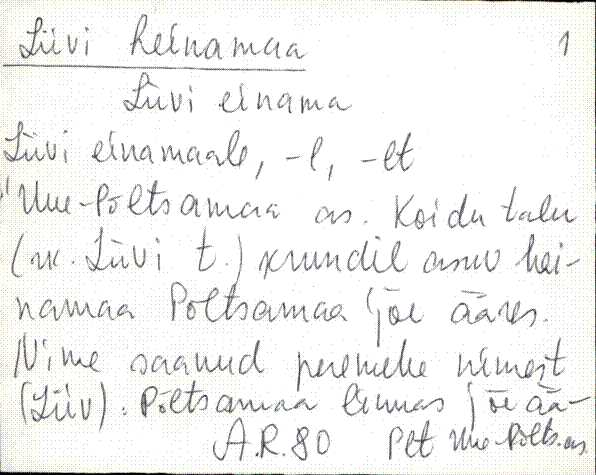 Liivi heinamaa 1
Lüvi einama
Lüvi einamaale, -l, -lt
Uue-Põltsamaa as. Koidu talu
(rk. Lüvi t.) krundil asuv hei-
namaa Põltsamaa jõe ääres.
Nime saanud peremehe nimest
(Liiv). Põltsamaa linnas jõe ää-
A.R. 80 Plt Uue-Põlts. as.